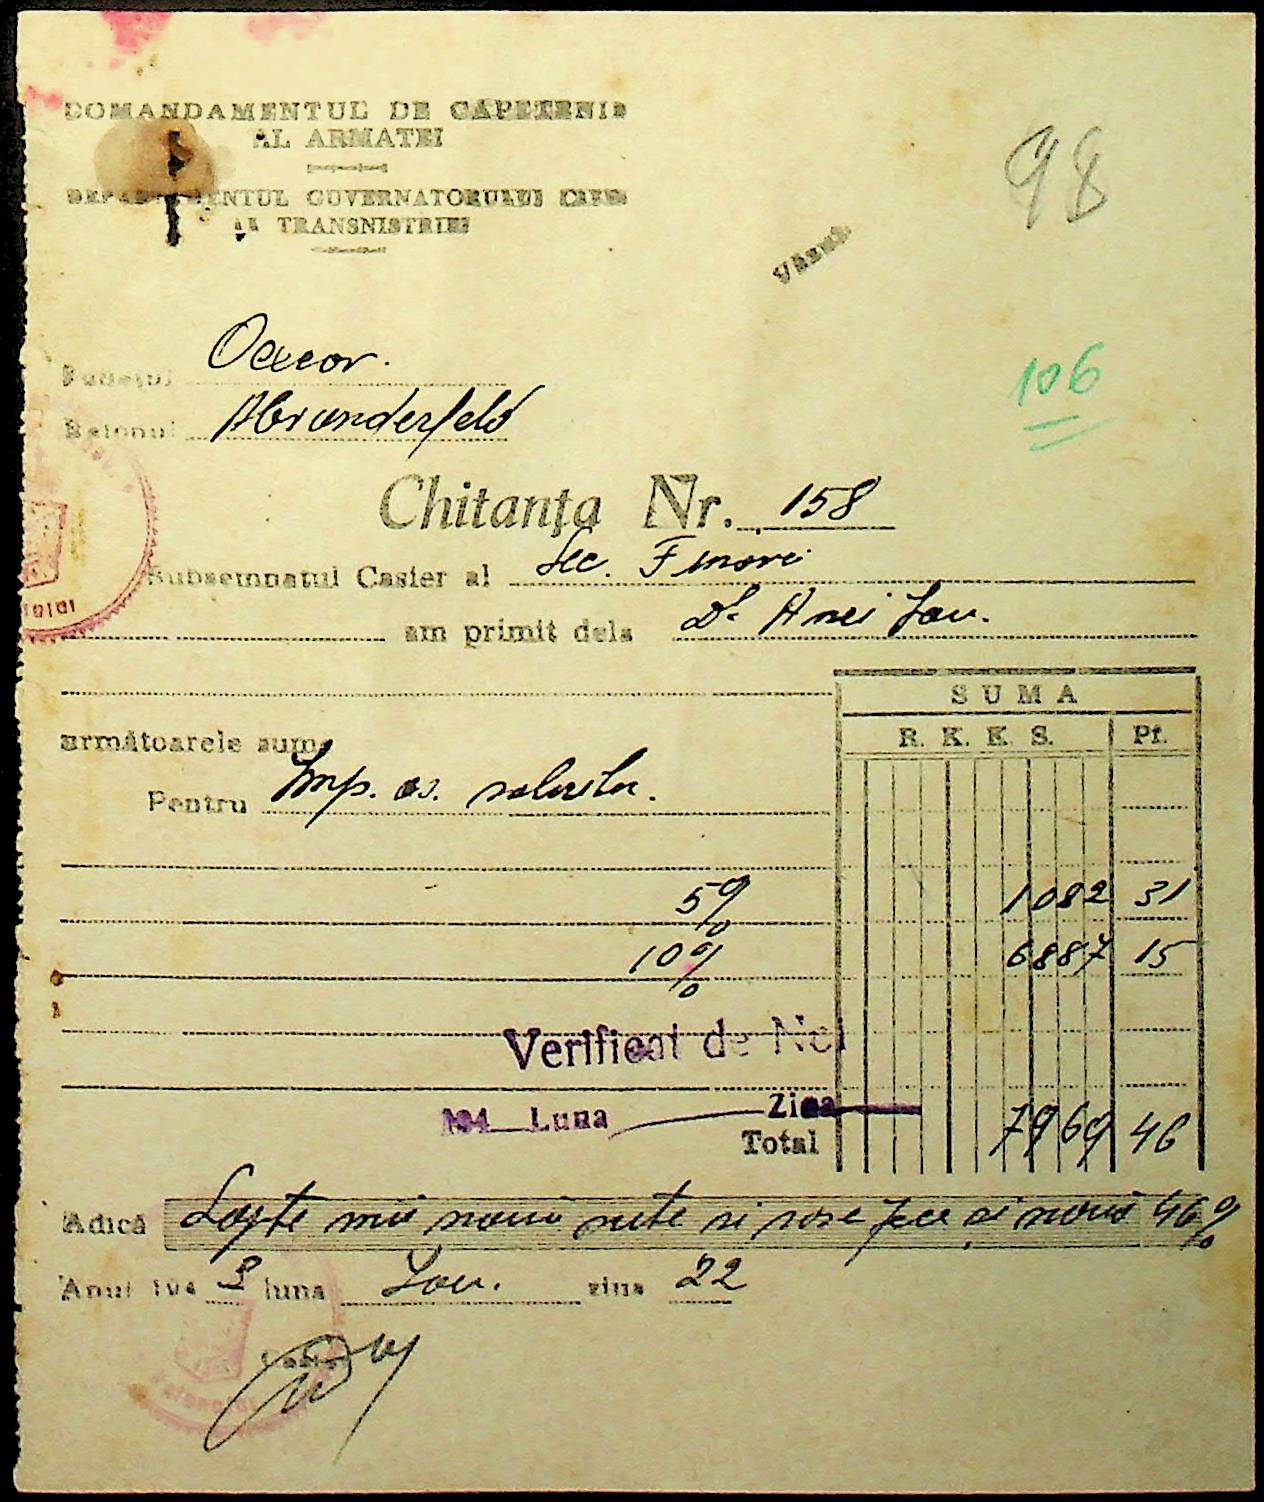 COMANDAMENTUL DE CAPETENIE
AL ARMATEI
DEPARTAMENTUL GUVERNATORULUI CIVIL
AL TRANSNISTRIEI
98
Văzut
106
Judeţul Oceacov.
Raionul Alexanderfeld
Chitanţa Nr. 158
Subsemnatul Casier al Sec. Financi
am primit dela D-
SUMA
R. K. K. S. Pf.
următoarele sume
Pentru Imp. as. salariilor.
5% 1082 31
10% 6887 15
Verificat de Noi
194 Luna Ziua
Total 7969 46
Adică Şapte mii nouă sute si 46%
Anul 194 3 luna Ian. ziua 22
Casier